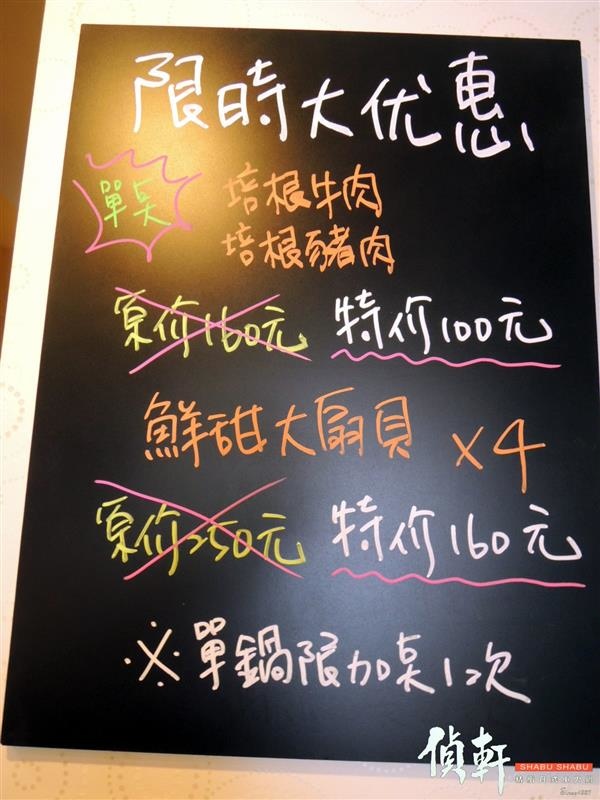 限時大优惠
單奌
培根牛肉
培根豬肉
原价160元 特价100元
鮮甜大扇貝 x4
原价250元 特价160元
※單鍋限加奌1次
偵軒 SHABU SHABU